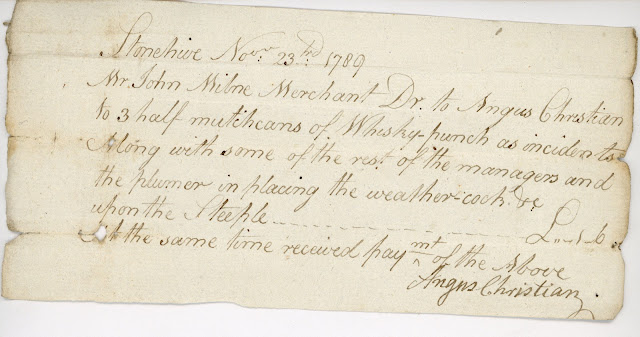 Stonehive Novr. 23d. 1789
Mr. John Milne Merchant Dr. to Angus Christian
to 3 half mutihcans of Whisky-punch as incidents
Along with some of the rest of the managers and
the plumer in placing the weather-cock &c
upon the Steeple - - - - - - - - - - £ ,, 1 ,, 6
At the same time received paymt of the Above
Angus Christian